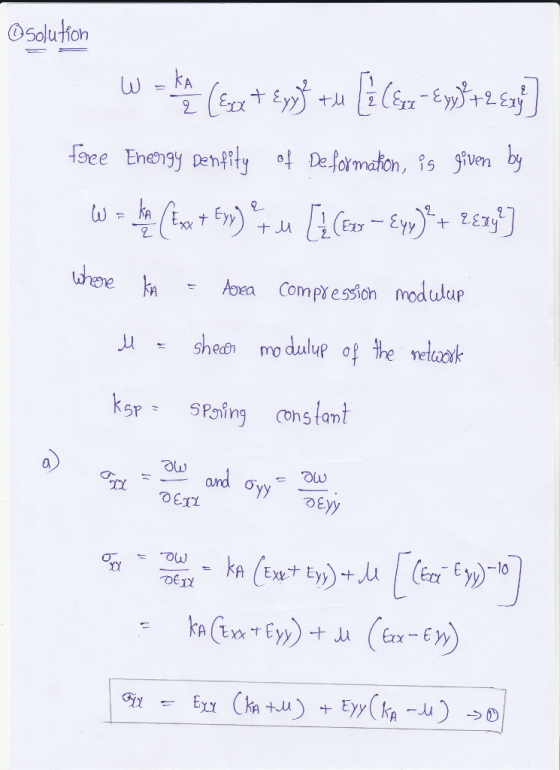 ① Solution
W = kA/2 (εxx + εyy)² + μ [1/2 (εxx - εyy)² + 2 εxy²]
Free Energy Denfity of Deformation, is given by
W = kA/2 (Exx + Eyy)² + μ [1/2 (Exx - εyy)² + 2εxy²]
where kA = Area compression modulup
μ = shear modulup of the network
kSP = SPring constant
a) σxx = ∂W/∂εxx and σyy = ∂W/∂εyy
σxx = ∂W/∂εxx = kA (Exx + Eyy) + μ [(Exx - Eyy) - 10]
= kA (Exx + Eyy) + μ (Exx - Eyy)
σxx = Exx (kA + μ) + Eyy (kA - μ) → ①